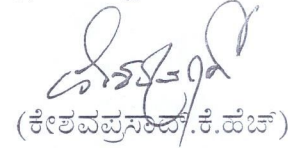 (ಕೇಶವಪ್ರಸಾದ್.ಕೆ.ಹೆಚ್)